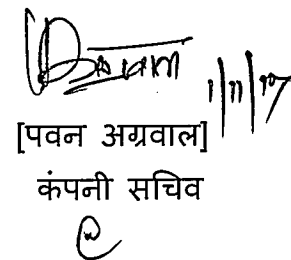 1/11/17
[पवन अग्रवाल]
कंपनी सचिव